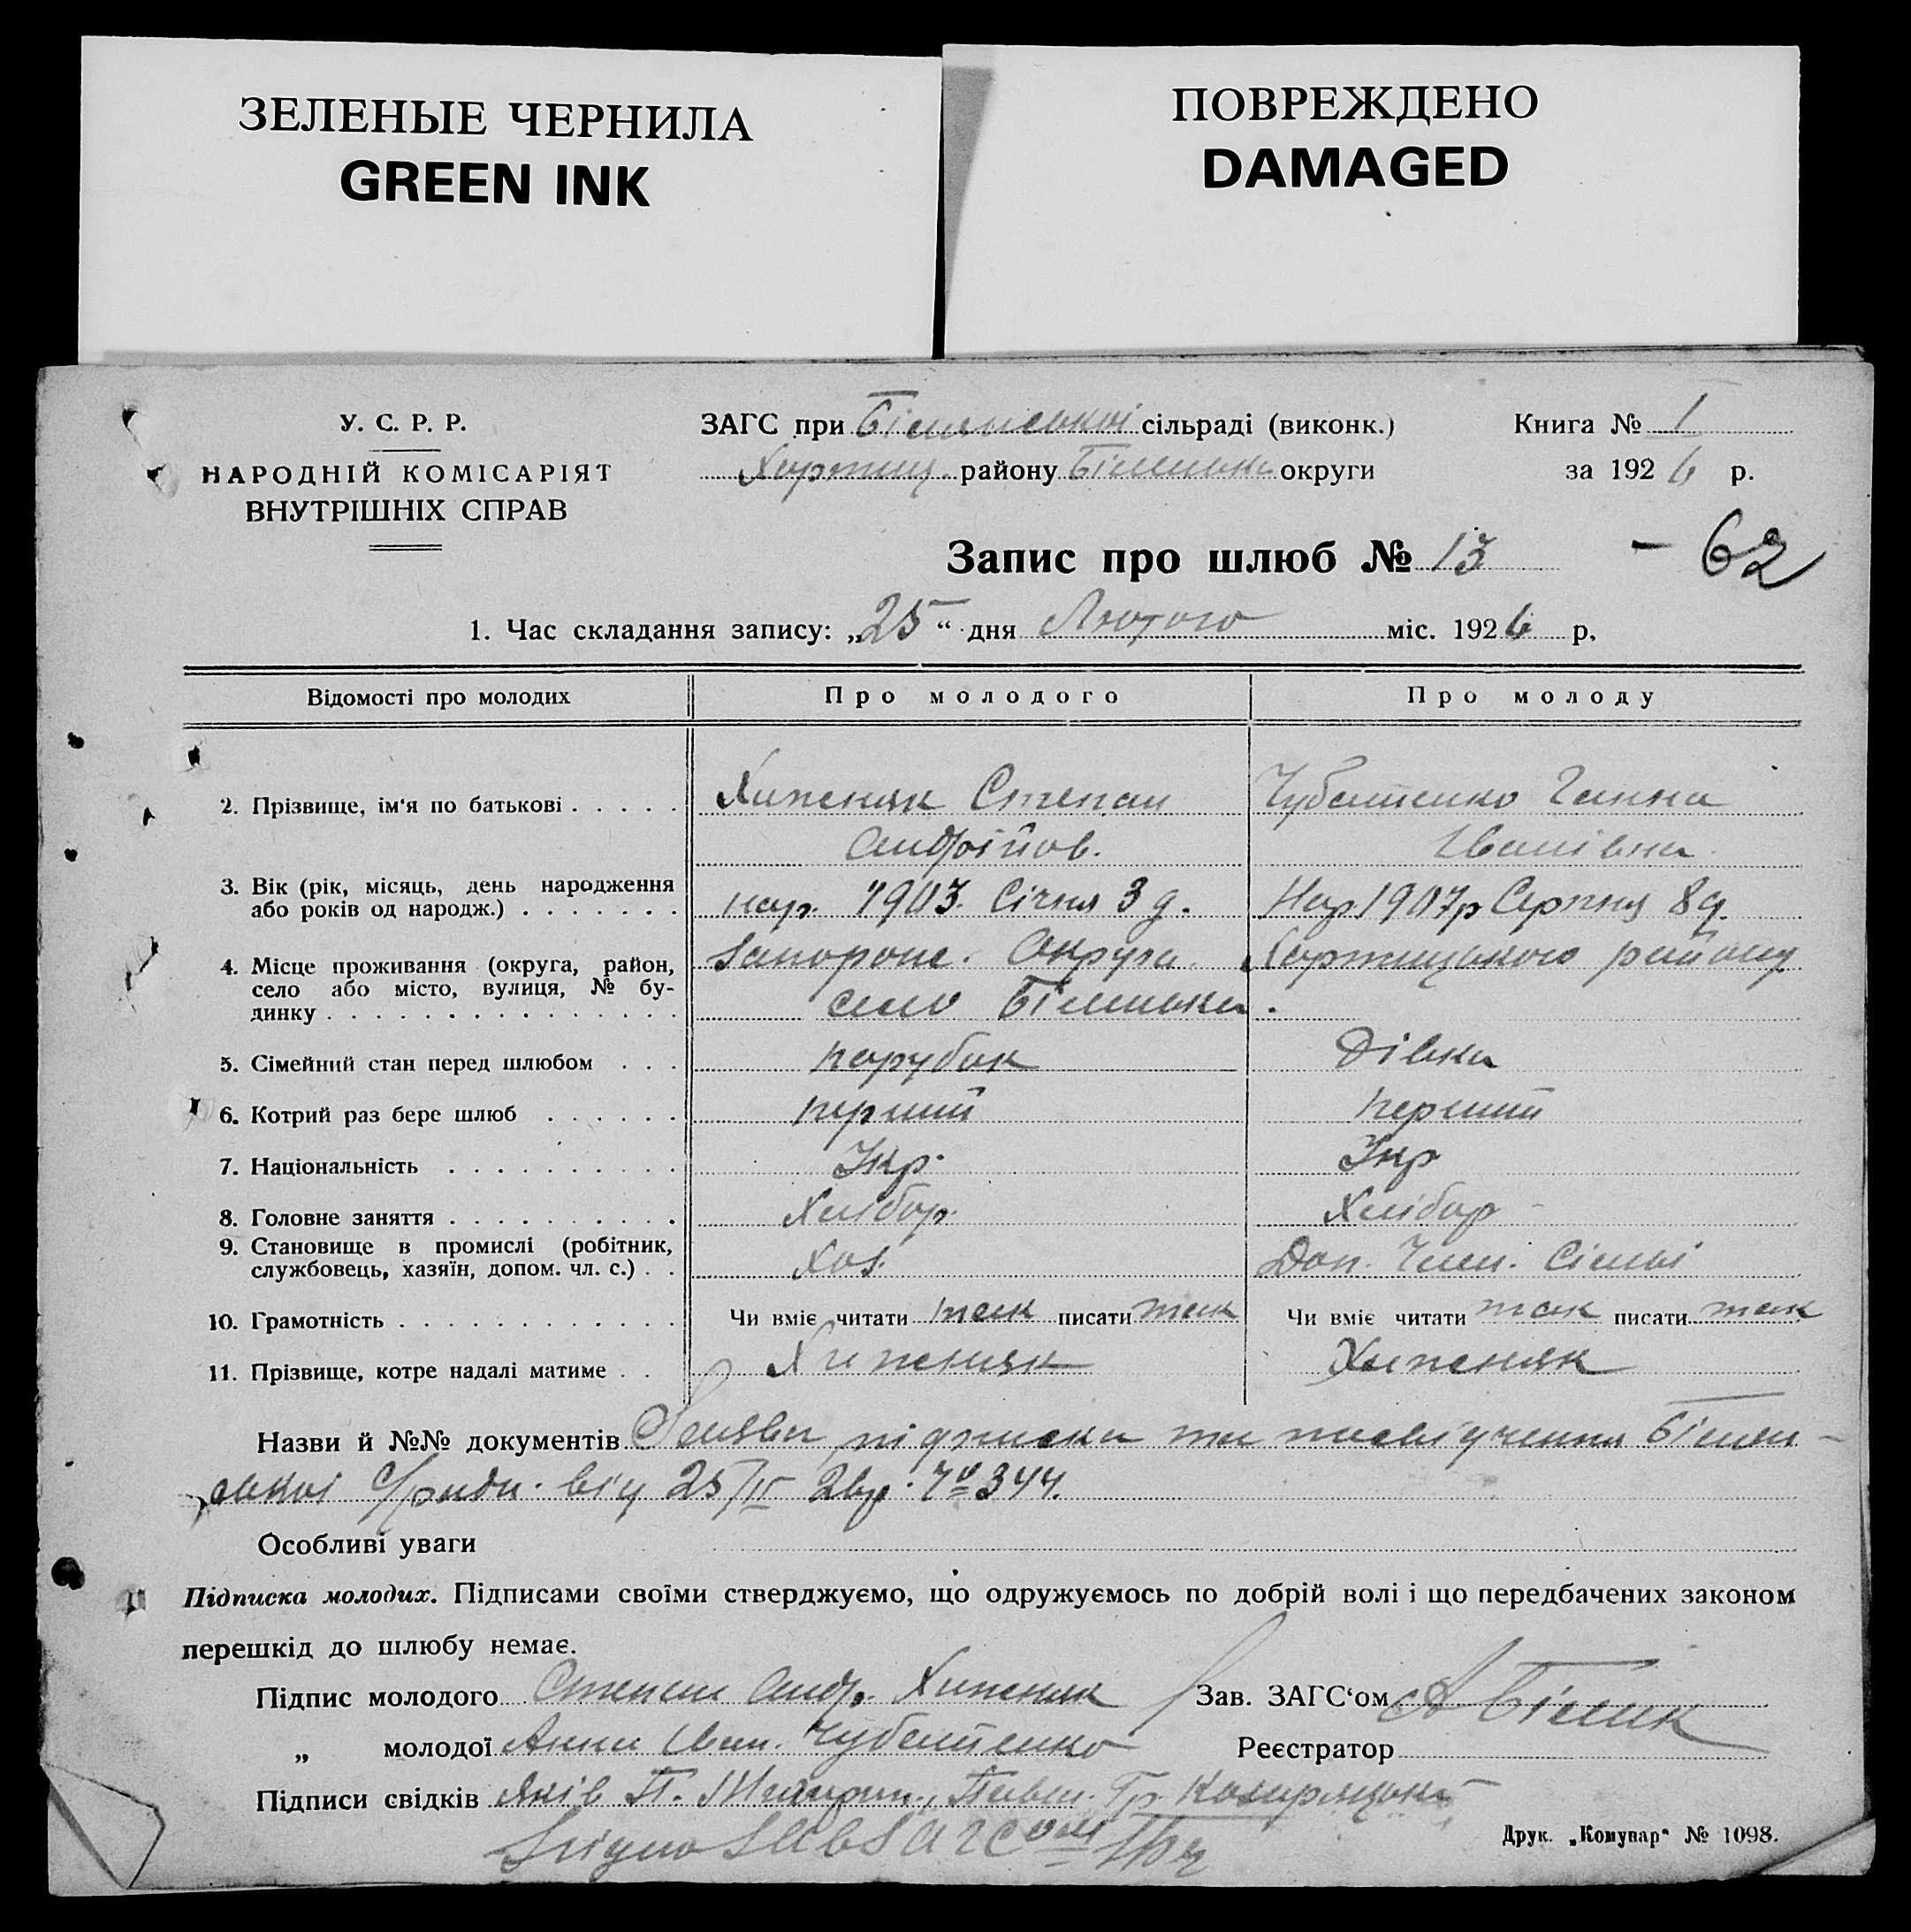 ЗЕЛЕНЫЕ ЧЕРНИЛА
GREEN INK
ПОВРЕЖДЕНО
DAMAGED
У. С. Р. Р.
НАРОДНІЙ КОМІСАРІЯТ
ВНУТРІШНІХ СПРАВ
ЗАГС при сільраді (виконк.)
Хортиц. району Біленька округи
Книга № I
за 1926 р.
Запис про шлюб № 13
- 62
1. Час складання запису: „25“ дня Лютого міс. 1926 р.
Відомості про молодих Про молодого Про молоду
2. Прізвище, ім'я по батькові . . . . . Хиженяк Степан Чубатенко Ганна
Андрійов. Іванівна
3. Вік (рік, місяць, день народження
або років од народж.) . . . . . . . нар. 1903. Січня 3 д. Нар 1907р Серпня 8 д.
4. Місце проживання (округа, район,
село або місто, вулиця, № бу-
динку . . . . . . . . . . . . . . . Запорож. Округа. Хортицького району
село Біленька.
5. Сімейний стан перед шлюбом . . . парубок Дівка
6. Котрий раз бере шлюб . . . . . . перший перший
7. Національність . . . . . . . . . . Укр. Укр
8. Головне заняття . . . . . . . . . . Хлібор. Хлібор
9. Становище в промислі (робітник,
службовець, хазяїн, допом. чл. с.) . . Хоз. Доп. Член. Сімьі
10. Грамотність . . . . . . . . . . . . Чи вміє читати так писати так Чи вміє читати так писати так
11. Прізвище, котре надалі матиме . . Хиженяк Хиженяк
Назви й №№ документів Заява підписка та посвідчення Білен-
ської С/ради. від 25/II 26р. № 344.
Особливі уваги
Підписка молодих. Підписами своїми стверджуємо, що одружуємось по добрій волі і що передбачених законом
перешкід до шлюбу немає.
Підпис молодого Степан Андр. Хиженяк Зав. ЗАГС'ом Білик
„ молодої Анна Иван. Чубатенко Реєстратор
Підписи свідків Яків П. Павло Гр.
Згідно ЗАВЗАГСом
Друк. „Комунар“ № 1098.